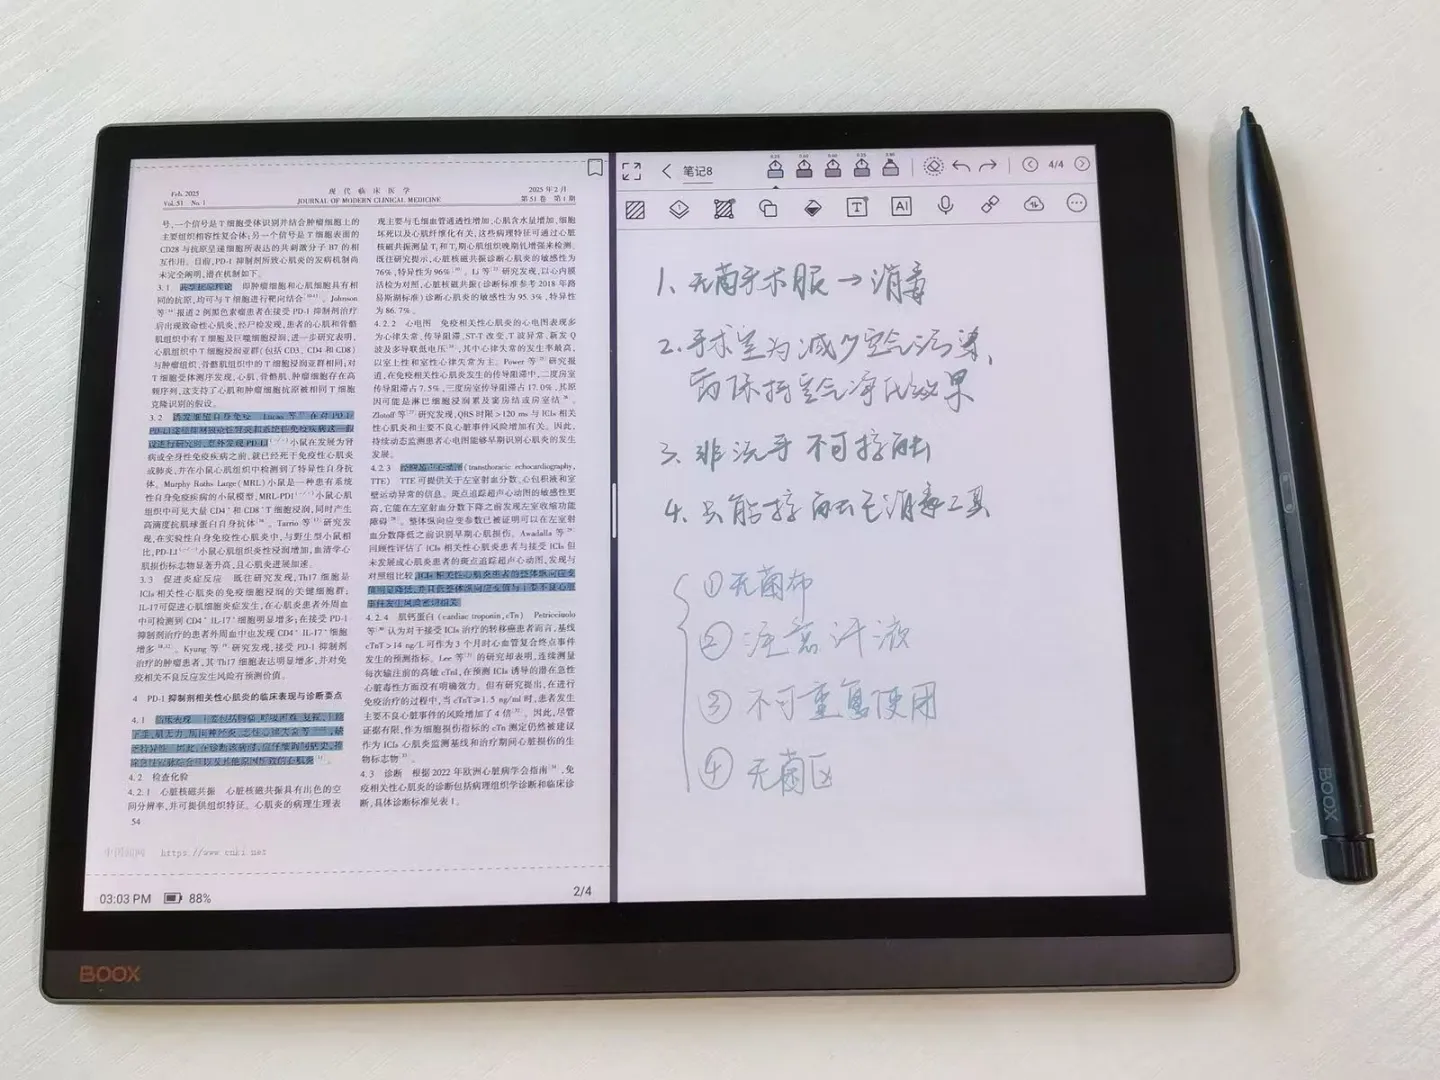 Feb. 2025
Vol. 51 No. 1
现代临床医学
JOURNAL OF MODERN CLINICAL MEDICINE
2025年2月
第51卷 第1期
号,一个信号是T细胞受体识别并结合肿瘤细胞上的
主要组织相容性复合体;另一个信号是T细胞表面的
CD28与抗原呈递细胞所表达的共刺激分子B7的相
互作用。目前,PD-1抑制剂所致心肌炎的发病机制尚
未完全阐明,潜在机制如下。
3.1 即肿瘤细胞和心肌细胞具有相
同的抗原,均可与T细胞进行靶向结合。Johnson
等报道2例黑色素瘤患者在接受PD-1抑制剂治疗
后出现致命性心肌炎,经尸检发现,患者的心肌和骨骼
肌组织中有T细胞及巨噬细胞浸润,进一步研究表明,
心肌组织中T细胞浸润亚群(包括CD3、CD4和CD8)
与肿瘤组织、骨骼肌组织中的T细胞浸润亚群相同;对
T细胞受体测序发现,心肌、骨骼肌、肿瘤细胞存在高
频序列,这支持了心肌和肿瘤细胞抗原被相同T细胞
克隆识别的假设。
3.2 诱发细胞自身免疫 Lucas等在对PD-1/
小鼠在发展为肾
病或全身性免疫疾病之前,就已经死于免疫性心肌炎
或肺炎,并在小鼠心肌组织中检测到了特异性自身抗
体。Murphy Roths Large(MRL)小鼠是一种患有系统
性自身免疫疾病的小鼠模型,MRL-PD1小鼠心肌
组织中可见大量CD4⁺和CD8⁺T细胞浸润,同时产生
高滴度抗肌球蛋白自身抗体。Tarrio等研究发
现,在实验性自身免疫性心肌炎中,与野生型小鼠相
比,PD-L1小鼠心肌组织炎性浸润增加,血清学心
肌损伤标志物显著升高,且心肌炎进展加速。
3.3 促进炎症反应 既往研究发现,Th17细胞是
ICIs相关性心肌炎的免疫细胞浸润的关键细胞群;
IL-17可促进心肌细胞炎症发生,在心肌炎患者外周血
中可检测到CD4⁺IL-17⁺细胞明显增多;在接受PD-1
抑制剂治疗的患者外周血中也发现CD4⁺IL-17⁺细胞
增多。Kyung等研究发现,接受PD-1抑制剂
治疗的肿瘤患者,其Th17细胞表达明显增多,并对免
疫相关不良反应发生风险有预测价值。
4 PD-1抑制剂相关性心肌炎的临床表现与诊断要点
4.1 临床表现 主要包括胸痛、呼吸困难
4.2 检查化验
4.2.1 心脏核磁共振 心脏核磁共振具有出色的空
间分辨率,并可提供组织特征。心肌炎的病理生理表
54
现主要与毛细血管通透性增加、心肌含水量增加、细胞
坏死以及心肌纤维化有关,这些病理特征可通过心脏
核磁共振测量T₁和T₂期心肌组织晚期钆增强来检测。
既往研究提示,心脏核磁共振诊断心肌炎的敏感性为
76%,特异性为96%。Li等研究发现,以心内膜
活检为对照,心脏核磁共振(诊断标准参考2018年路
易斯湖标准)诊断心肌炎的敏感性为95.3%,特异性
为86.7%。
4.2.2 心电图 免疫相关性心肌炎的心电图表现多
为心律失常、传导阻滞、ST-T改变、T波异常、新发Q
波及多导联低电压,其中心律失常的发生率最高,
以室上性和室性心律失常为主。Power等研究报
道,在免疫相关性心肌炎发生的传导阻滞中,二度房室
传导阻滞占7.5%,三度房室传导阻滞占17.0%,其原
因可能是淋巴细胞浸润累及窦房结或房室结。
Zlotoff等研究发现,QRS时限>120 ms与ICIs相关
性心肌炎和主要不良心脏事件风险增加有关。因此,
持续动态监测患者心电图能够早期识别心肌炎的发生
发展。
4.2.3 经胸超声心动图(transthoracic echocardiography,
TTE) TTE可提供关于左室射血分数、心包积液和室
壁运动异常的信息。斑点追踪超声心动图的敏感性更
高,它能在左室射血分数下降之前发现左室收缩功能
障碍。整体纵向应变参数已被证明可以在左室射
血分数降低之前识别早期心肌损伤。Awadalla等
回顾性评估了ICIs相关性心肌炎患者与接受ICIs但
未发展成心肌炎患者的斑点追踪超声心动图,发现与
对照组比较,ICIs相关性心肌炎患者的整体纵向应变
值明显降低,并且低整体纵向应变值与主要不良心脏
事件发生风险密切相关。
4.2.4 肌钙蛋白(cardiac troponin,cTn) Petricciuolo
等认为对于接受ICIs治疗的转移癌患者而言,基线
cTnT>14 ng/L可作为3个月时心血管复合终点事件
发生的预测指标。Lee等的研究却表明,连续测量
每次输注前的高敏cTnI,在预测ICIs诱导的潜在急性
心脏毒性方面没有明确效力。但有研究提出,在进行
免疫治疗的过程中,当cTnT≥1.5 ng/ml时,患者发生
主要不良心脏事件的风险增加了4倍。因此,尽管
证据有限,作为细胞损伤指标的cTn测定仍然被建议
作为ICIs心肌炎监测基线和治疗期间心脏损伤的生
物标志物。
4.3 诊断 根据2022年欧洲心脏病学会指南,免
疫相关性心肌炎的诊断包括病理组织学诊断和临床诊
断,具体诊断标准见表1。
中国知网 https://www.cnki.net
03:03 PM 88%
2/4
笔记8
4/4
1、无菌手术服→消毒
2.手术室为减少空气污染、
而保持空气净化效果
3、非洗手不可接触
4、只能接触已消毒工具
①无菌布
②注意汗液
③不可重复使用
④无菌区
BOOX
BOOX